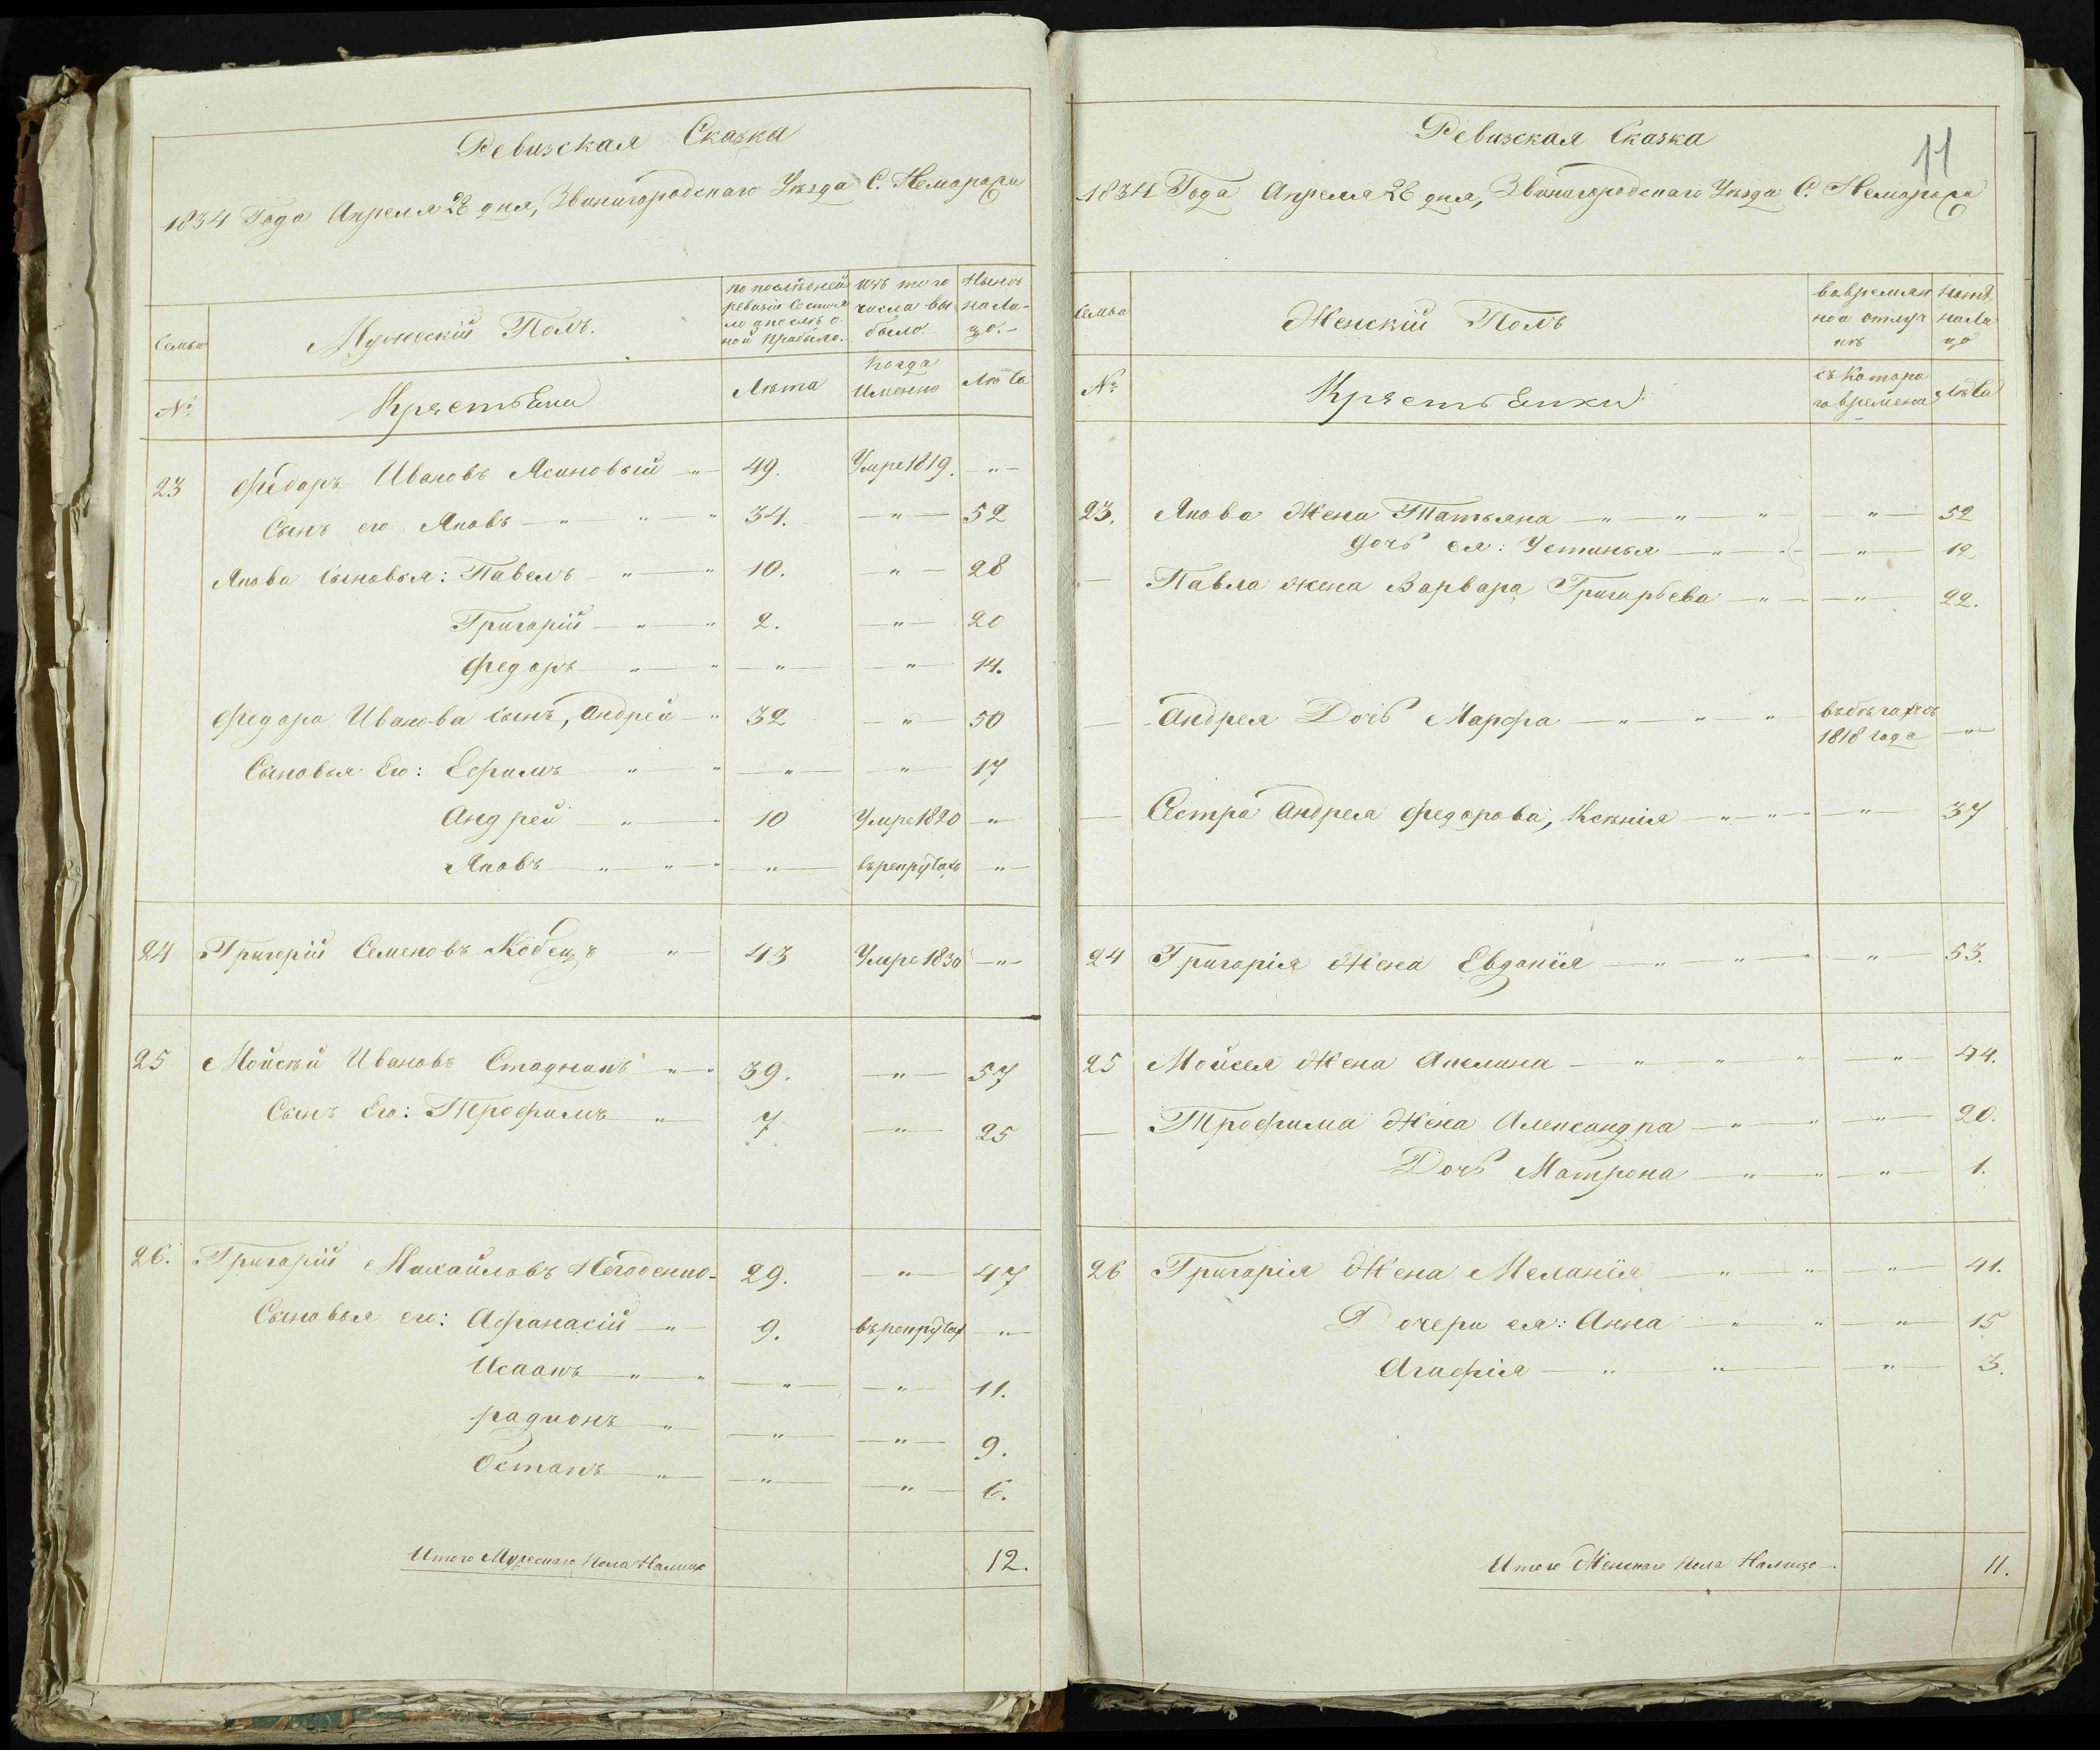 Ревизская Сказка
1834 Года Апреля 28 дня, Звинигородскаго Уѣзда С. Неморожи
Семьи
Мужескій Полъ.
по послѣдней
ревизіи состоя
ло и послѣ о
ной прибыло.
изъ того
числа вы
было
Нынѣ
на Ли-
цо.
№
Крястьяни
Лѣта
Когда
Именно
Лѣта
23 Федоръ Ивановъ Ясиновый 49. Умре 1819.
Сынъ его Яковъ 34. 52
Якова Сыновья: Павелъ 10. 28
Григорій 2. 20
Федоръ 14.
Федора Иванова сынъ, Андрей 32 50
Сыновья Его: Ефимъ 17
Андрей 10 Умре 1820
Яковъ въ рекрутахъ
24 Григорій Семеновъ Кобецъ 43 Умре 1830
25 Мойсѣй Ивановъ Стадникъ 39. 57
Сынъ Его: Трофимъ 7 25
26. Григорій Михайловъ 29. 47
Сыновья его: Афанасій 9. въ рекрутах
Исаакъ 11.
радионъ 9.
Остапъ 6.
Итого Мужескаго пола Налицо 12.
11
Ревизская Сказка
1834 Года Апреля 28 дня, Звинигородскаго Уѣзда С. Неморожи
Семьи
Женскій Полъ
во времян
ной отлуч
кѣ
на Ли
цо
№
Крястьянки
съ Котора
го времени
Лѣта
23. Якова Жена Татьяна 52
дочь ея: Устинья 12
Павла жена Варвара Григорьева 22.
Андрея Дочь Марфа въ бѣгахъ съ
1818 года
Сестра Андрея Федорова, Ксѣнія 37
24 Григорія Жена Евдокія 53.
25 Мойсея Жена Акилина 44.
Трофима Жена Александра 20.
Дочь Матрона 1.
26 Григорія Жена Меланія 41.
Дочери ея: Анна 15
Агафія 3.
Итого Женскаго пола Налицо 11.